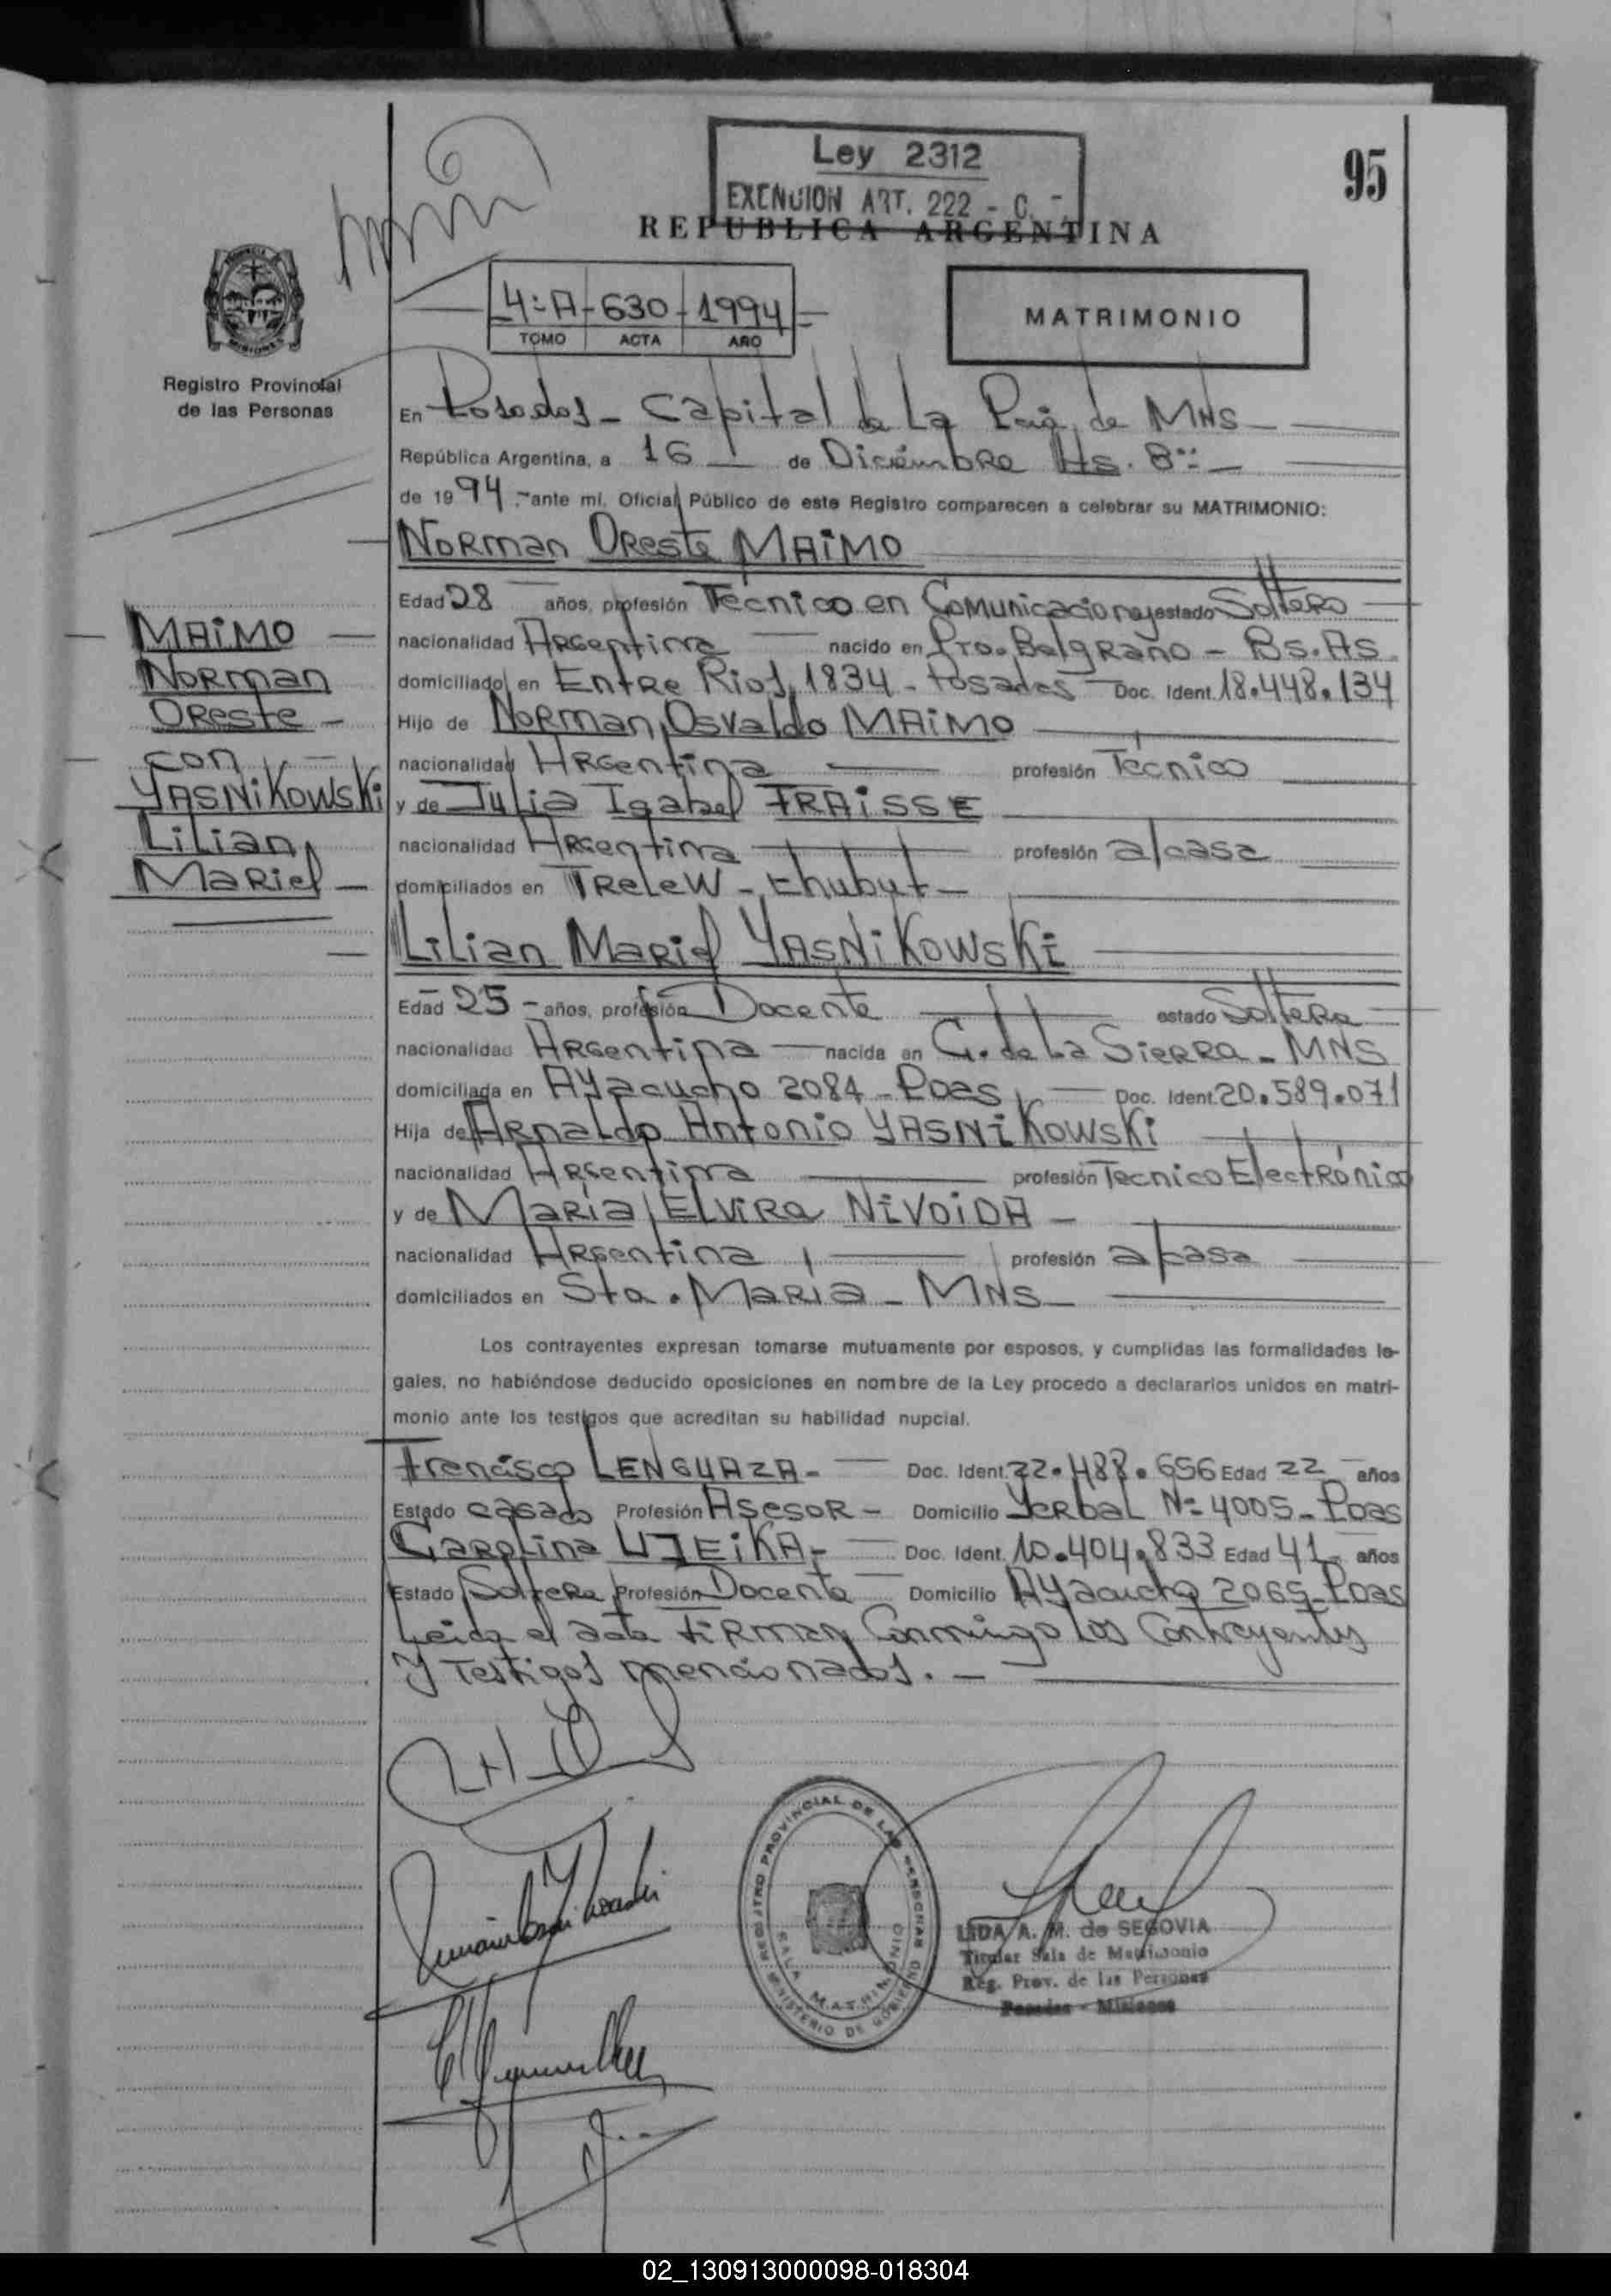 Ley 2312
EXENCION ART. 222 - C. -
95
REPUBLICA ARGENTINA
4:A - 630 - 1994
TOMO ACTA AÑO
MATRIMONIO
Registro Provincial
de las Personas
En Posadas - Capital de La Pcia. de MNS
República Argentina, a 16 de Diciembre Hs. 8
de 1994 .- ante mí, Oficial Público de este Registro comparecen a celebrar su MATRIMONIO:
Norman Oreste MAIMO
Edad 28 años, profesión Técnico en Comunicaciones estado Soltero
nacionalidad Argentina nacido en Pto. Belgrano - Bs. As
domiciliado en Entre Ríos 1834 - Posadas Doc. Ident. 18.448.134
Hijo de Norman Osvaldo MAIMO
nacionalidad Argentina profesión Técnico
y de Julia Isabel FRAISSE
nacionalidad Argentina profesión a/casa
domiciliados en Trelew - Chubut -
MAIMO
Norman
Oreste -
con
YASNIKOWSKI
Lilian
Mariel -
Lilian Mariel YASNIKOWSKI
Edad 25 - años, profesión Docente estado Soltera
nacionalidad Argentina nacida en C. de La Sierra - MNS
domiciliada en Ayacucho 2084 - Pdas Doc. Ident. 20.589.071
Hija de Arnaldo Antonio YASNIKOWSKI
nacionalidad Argentina profesión Tecnico Electrónico
y de María Elvira NIVOIDA -
nacionalidad Argentina profesión a/casa
domiciliados en Sta. María - MNS
Los contrayentes expresan tomarse mutuamente por esposos, y cumplidas las formalidades le-
gales, no habiéndose deducido oposiciones en nombre de la Ley procedo a declararlos unidos en matri-
monio ante los testigos que acreditan su habilidad nupcial.
Francisco LENGUAZA - Doc. Ident. 22.488.656 Edad 22 años
Estado casado Profesión Asesor - Domicilio Yerbal Nº 4005 - Pdas
Carolina UJEIKA - Doc. Ident. 10.404.833 Edad 41 años
Estado Soltera Profesión Docente Domicilio Ayacucho 2065 - Pdas
Leida el acta firman Conmigo los Contrayentes
y Testigos mencionados. -
REGISTRO PROVINCIAL DE LAS PERSONAS
MINISTERIO DE GOBIERNO
SALA MATRIMONIO
LIDA A. M. de SEGOVIA
Titular Sala de Matrimonio
Reg. Prov. de las Personas
Posadas - Misiones
02_130913000098-018304